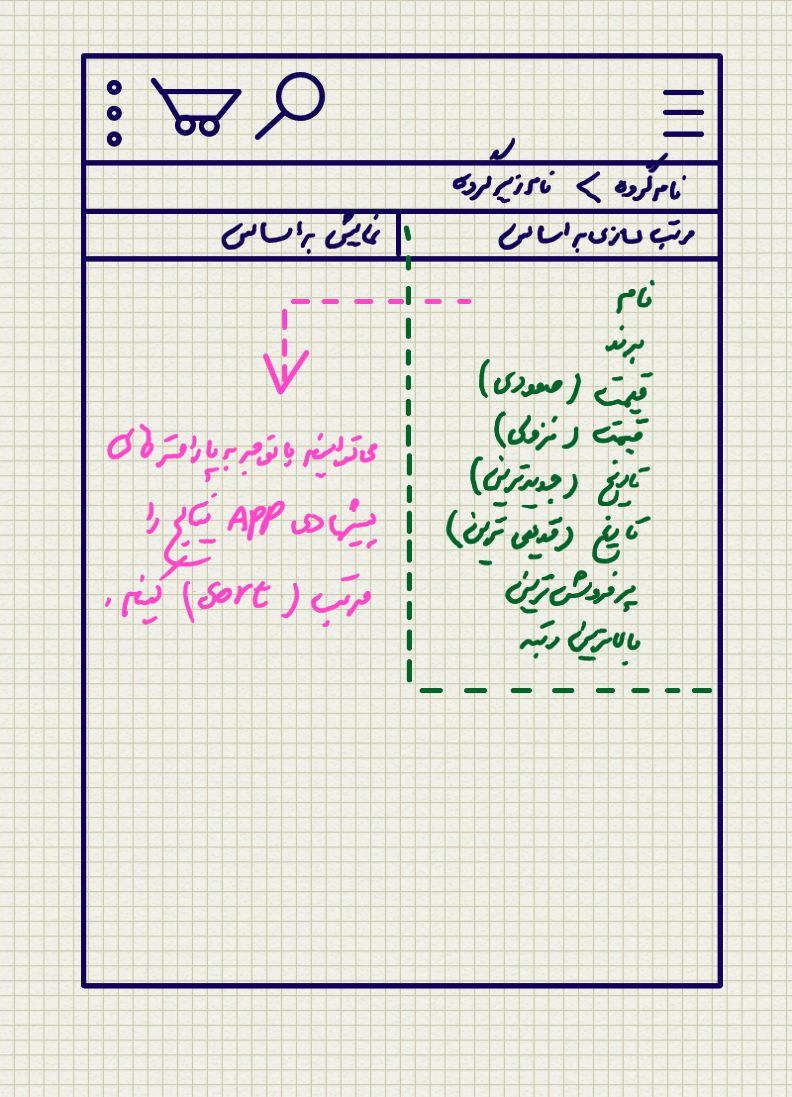 نام گروه > نام زیر گروه
مرتب سازی بر اساس
نمایش بر اساس
نام
برند
قیمت (صعودی)
قیمت (نزولی)
تاریخ (جدیدترین)
تاریخ (قدیمی ترین)
پر فروش ترین
بالاترین رتبه
می توانیم با توجه به پارامتر های
پیشنهادی APP نتایج را
مرتب (sort) کنیم.